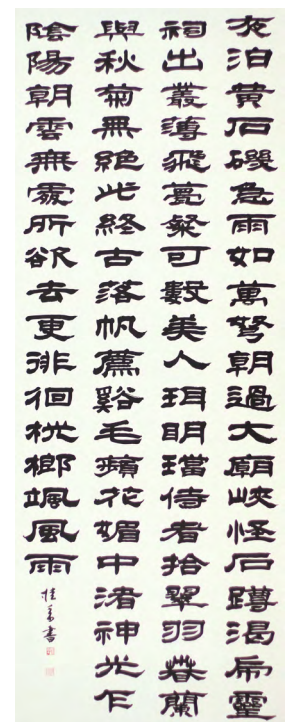 夜泊黄石磯急雨如萬弩朝過大廟峽怪石蹲渴虎靈
祠出叢薄飛甍粲可數美人玥明璫侍者拾翠羽春蘭
與秋菊無絕此終古落帆薦谿毛蘋花媚中渚神光乍
陰陽朝雲無處所欲去更徘徊桄榔颯風雨
書